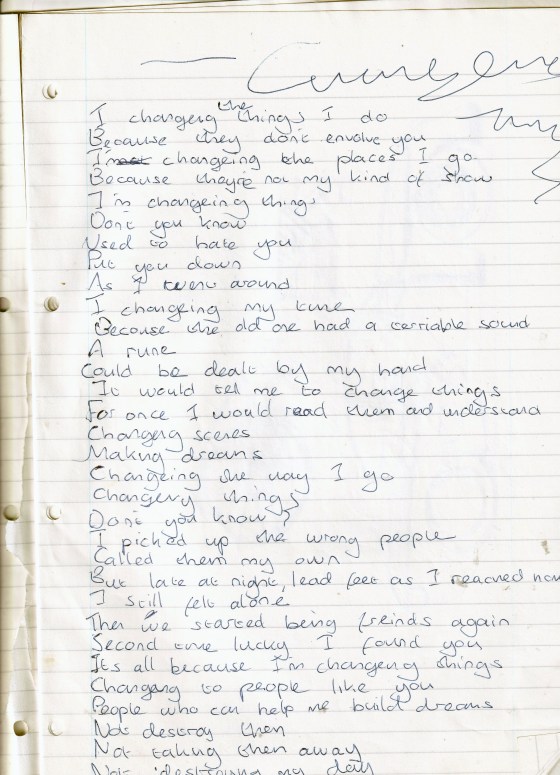 I changeing the things I do
Because they dont envolve you
I'm changeing the places I go
Because they're not my kind of show
I'm changeing things
Don't you know
Used to hate you
Put you down
As I went around
I changeing my tune
Because the old one had a terriable sound
A rune
Could be dealt by my hand
It would tell me to change things
For once I would read them and understand
Changeing scenes
Making dreams
Changeing the way I go
Changeing things
Don't you know?
I picked up the wrong people
Called them my own
But late at night, lead feet as I reached
I still felt alone
Then we started being freinds again
Second time lucky I found you
It's all because I'm changeing things
Changeing to people like you
People who can help me build dreams
Not destroy them
Not taking them away
Not destroying my day